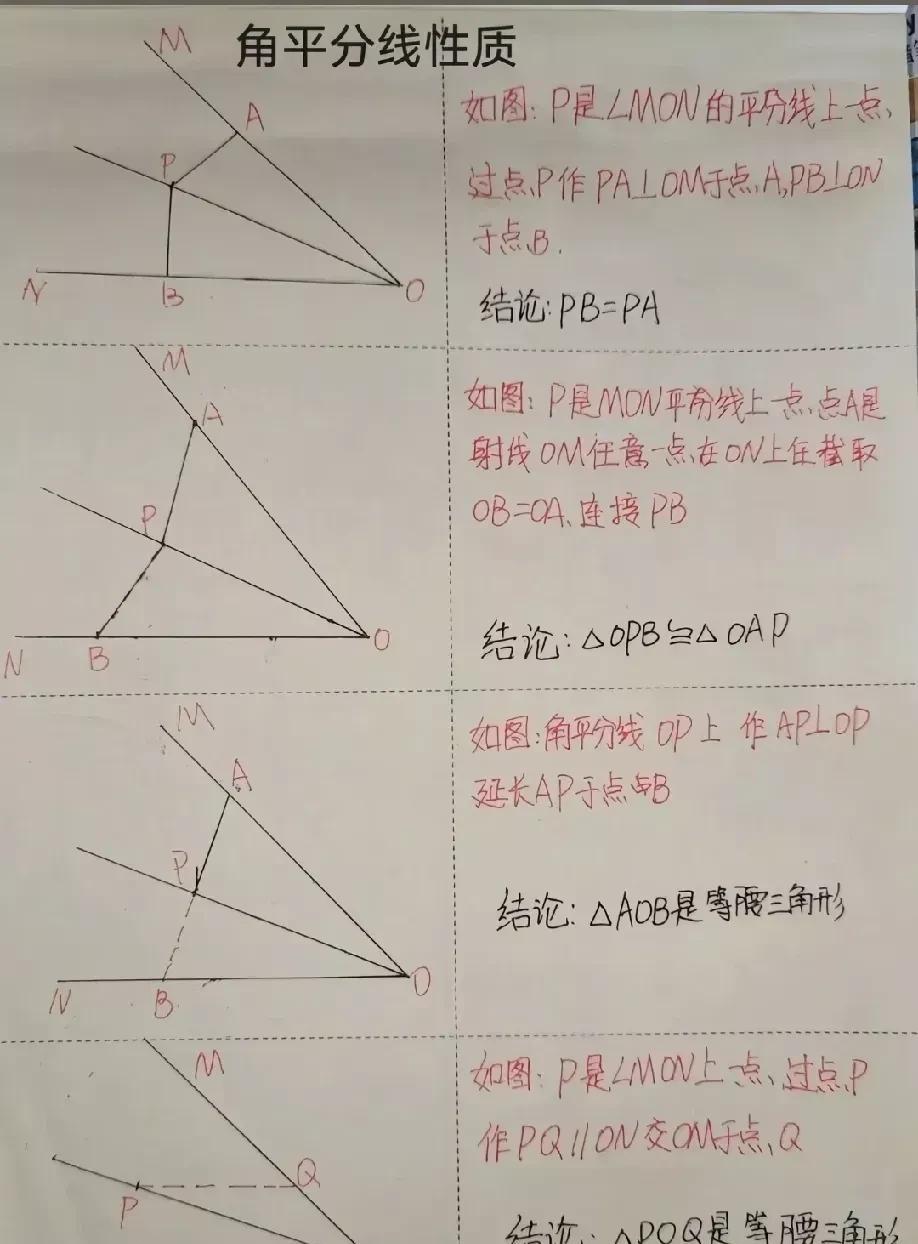 角平分线性质
M
A
P
N
B
O
如图: P是∠MON的平分线上一点,
过点P作PA⊥OM于点A,PB⊥ON
于点B.
结论:PB=PA
M
A
P
N
B
O
如图: P是MON平分线上一点,点A是
射线OM任意一点,在ON上任截取
OB=OA、连接PB
结论:△OPB≌△OAP
M
A
P
N
B
O
如图:角平分线OP上 作AP⊥OP
延长AP于点与B
结论:△AOB是等腰三角形
M
Q
P
如图: P是∠MON上一点,过点P
作PQ//ON交OM于点Q
结论:△POQ是等腰三角形